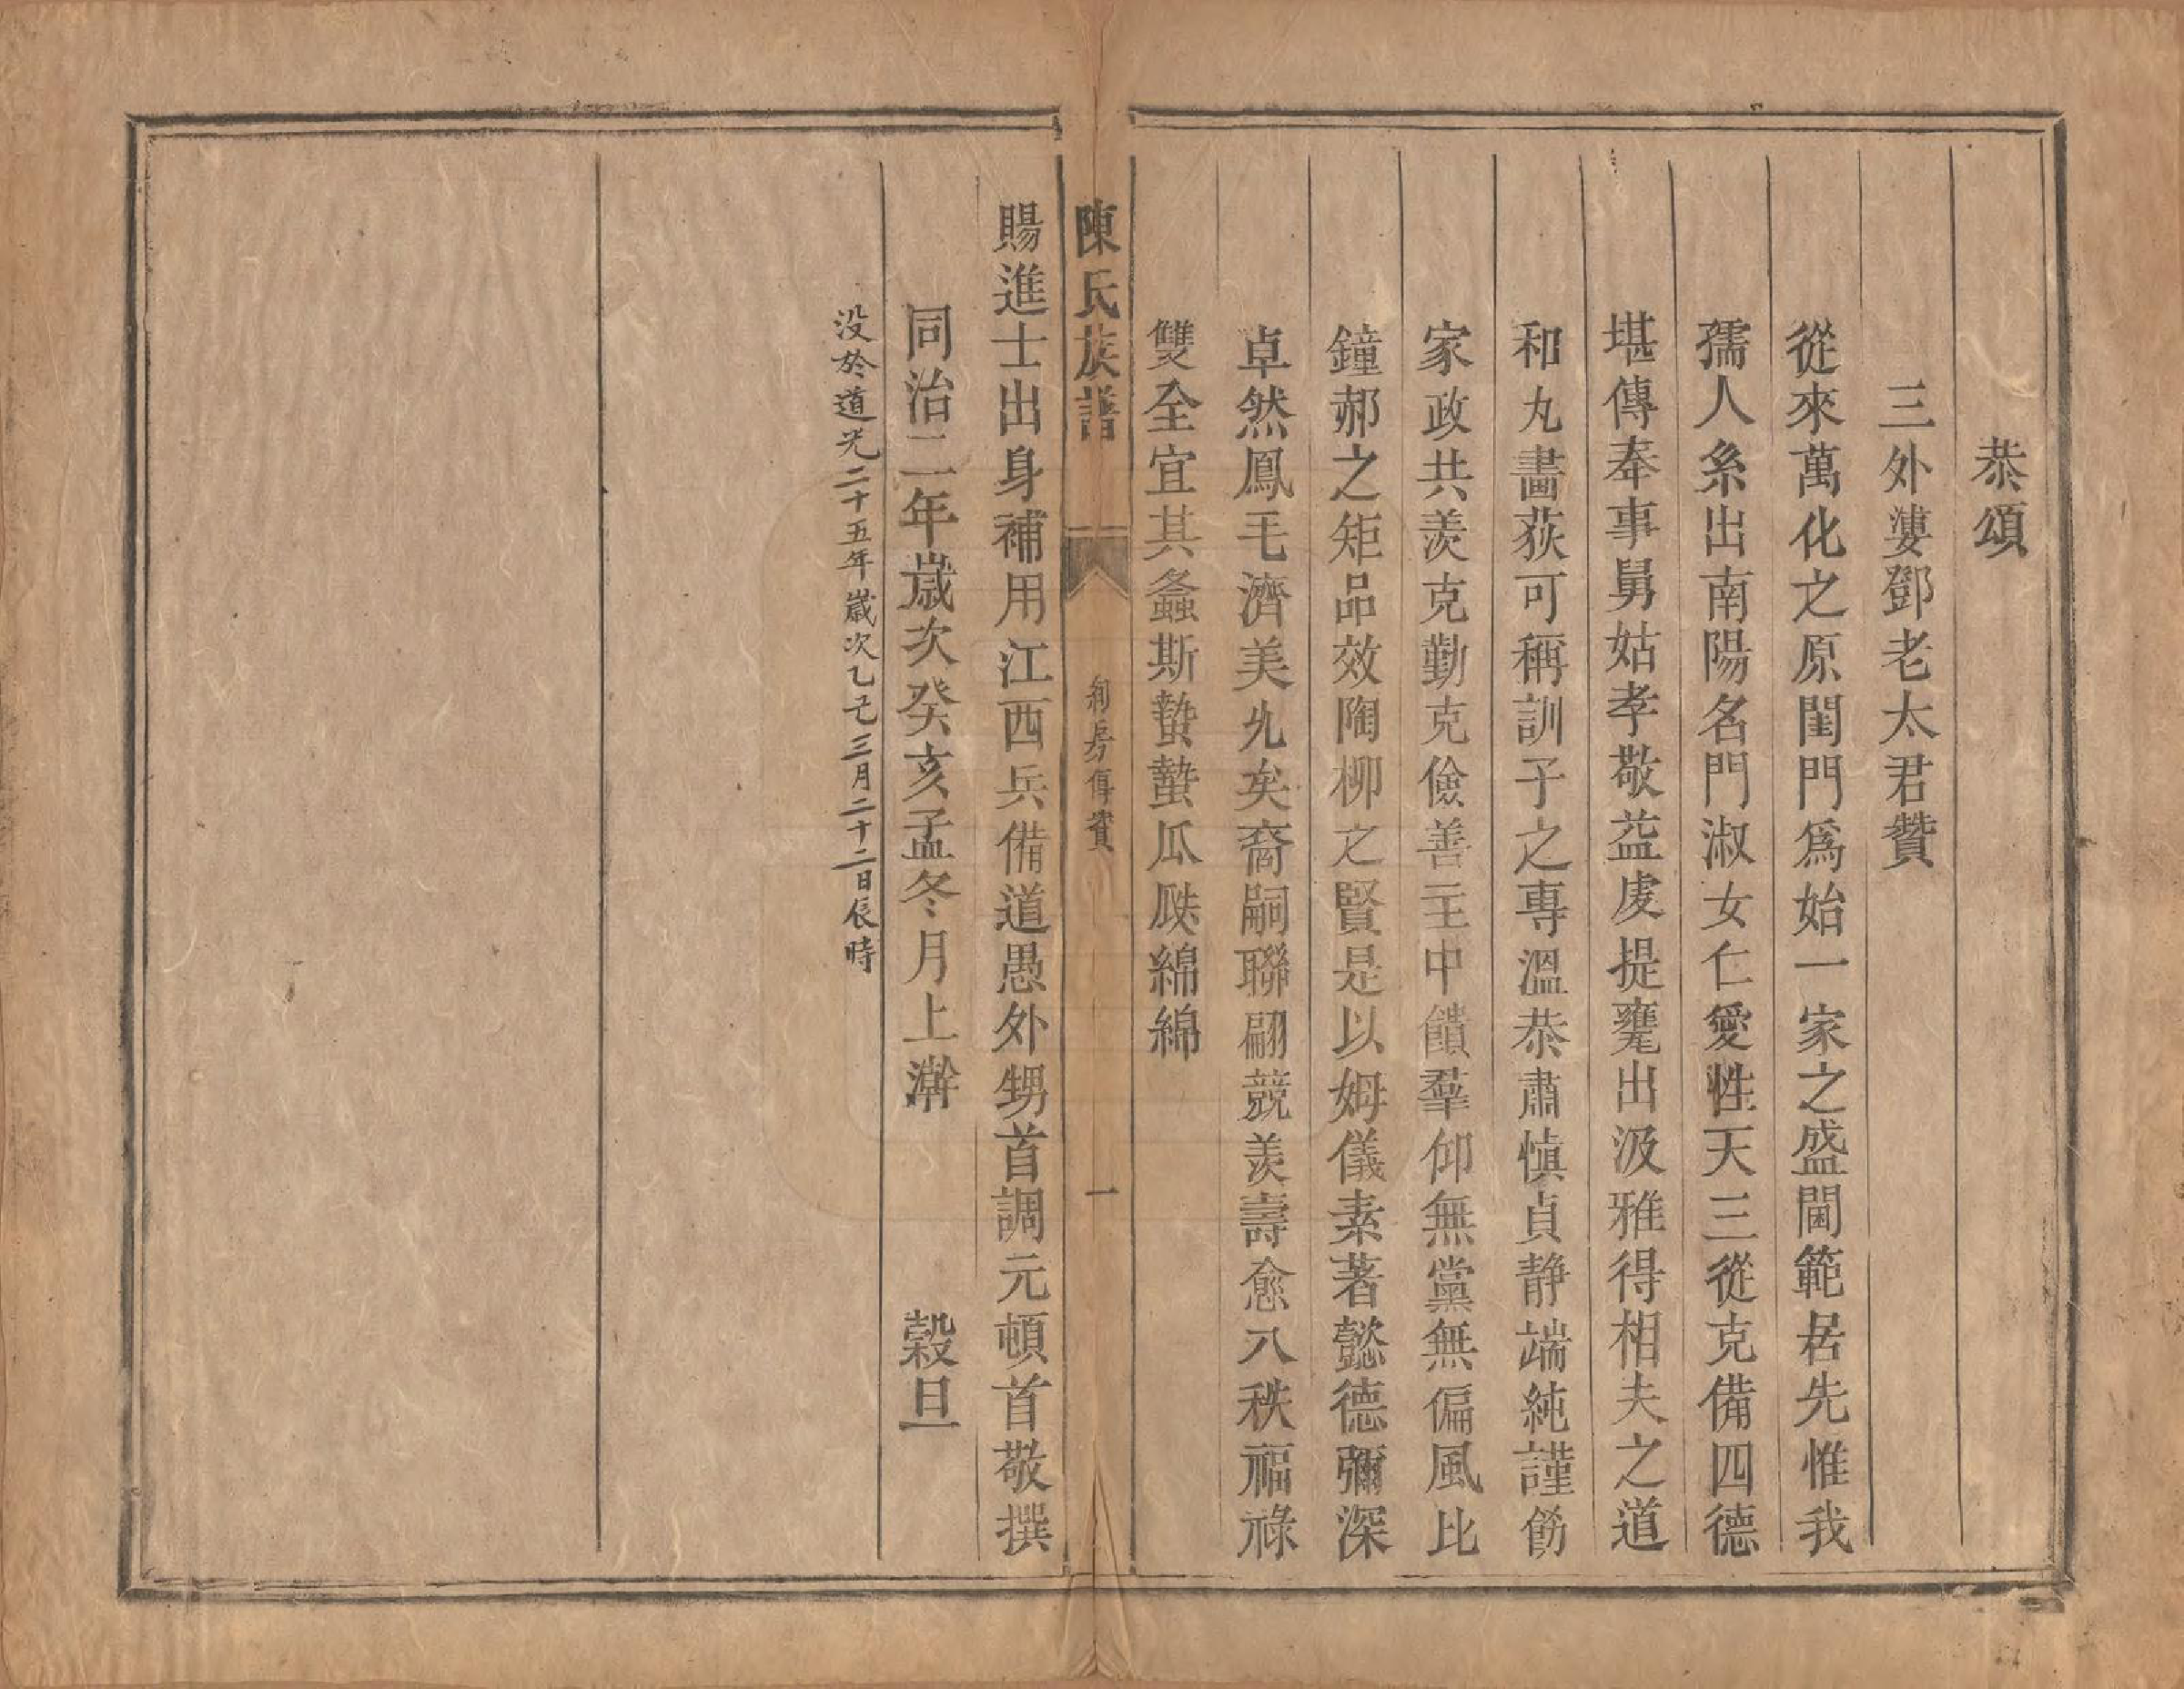 恭頌
三外婆鄧老太君贊
從來萬化之原閨門爲始一家之盛閫範居先惟我
孺人系出南陽名門淑女仁愛性天三從克備四德
堪傳奉事舅姑孝敬益虔提甕出汲雅得相夫之道
和丸畫荻可稱訓子之專溫恭肅愼貞静端純謹飭
家政共羨克勤克儉善主中饋羣仰無黨無偏風比
鐘郝之矩品效陶柳之賢是以姆儀素著懿德彌深
卓然鳳毛濟美允矣裔嗣聯翩競羡壽愈八秩福祿
雙全宜其螽斯蟄蟄瓜瓞綿綿
陳氏族譜
利房傳贊
一
賜進士出身補用江西兵備道愚外甥首調元頓首敬撰
同治二年歲次癸亥孟冬月上澣 穀旦
没於道光二十五年歲次乙巳三月二十二日辰時